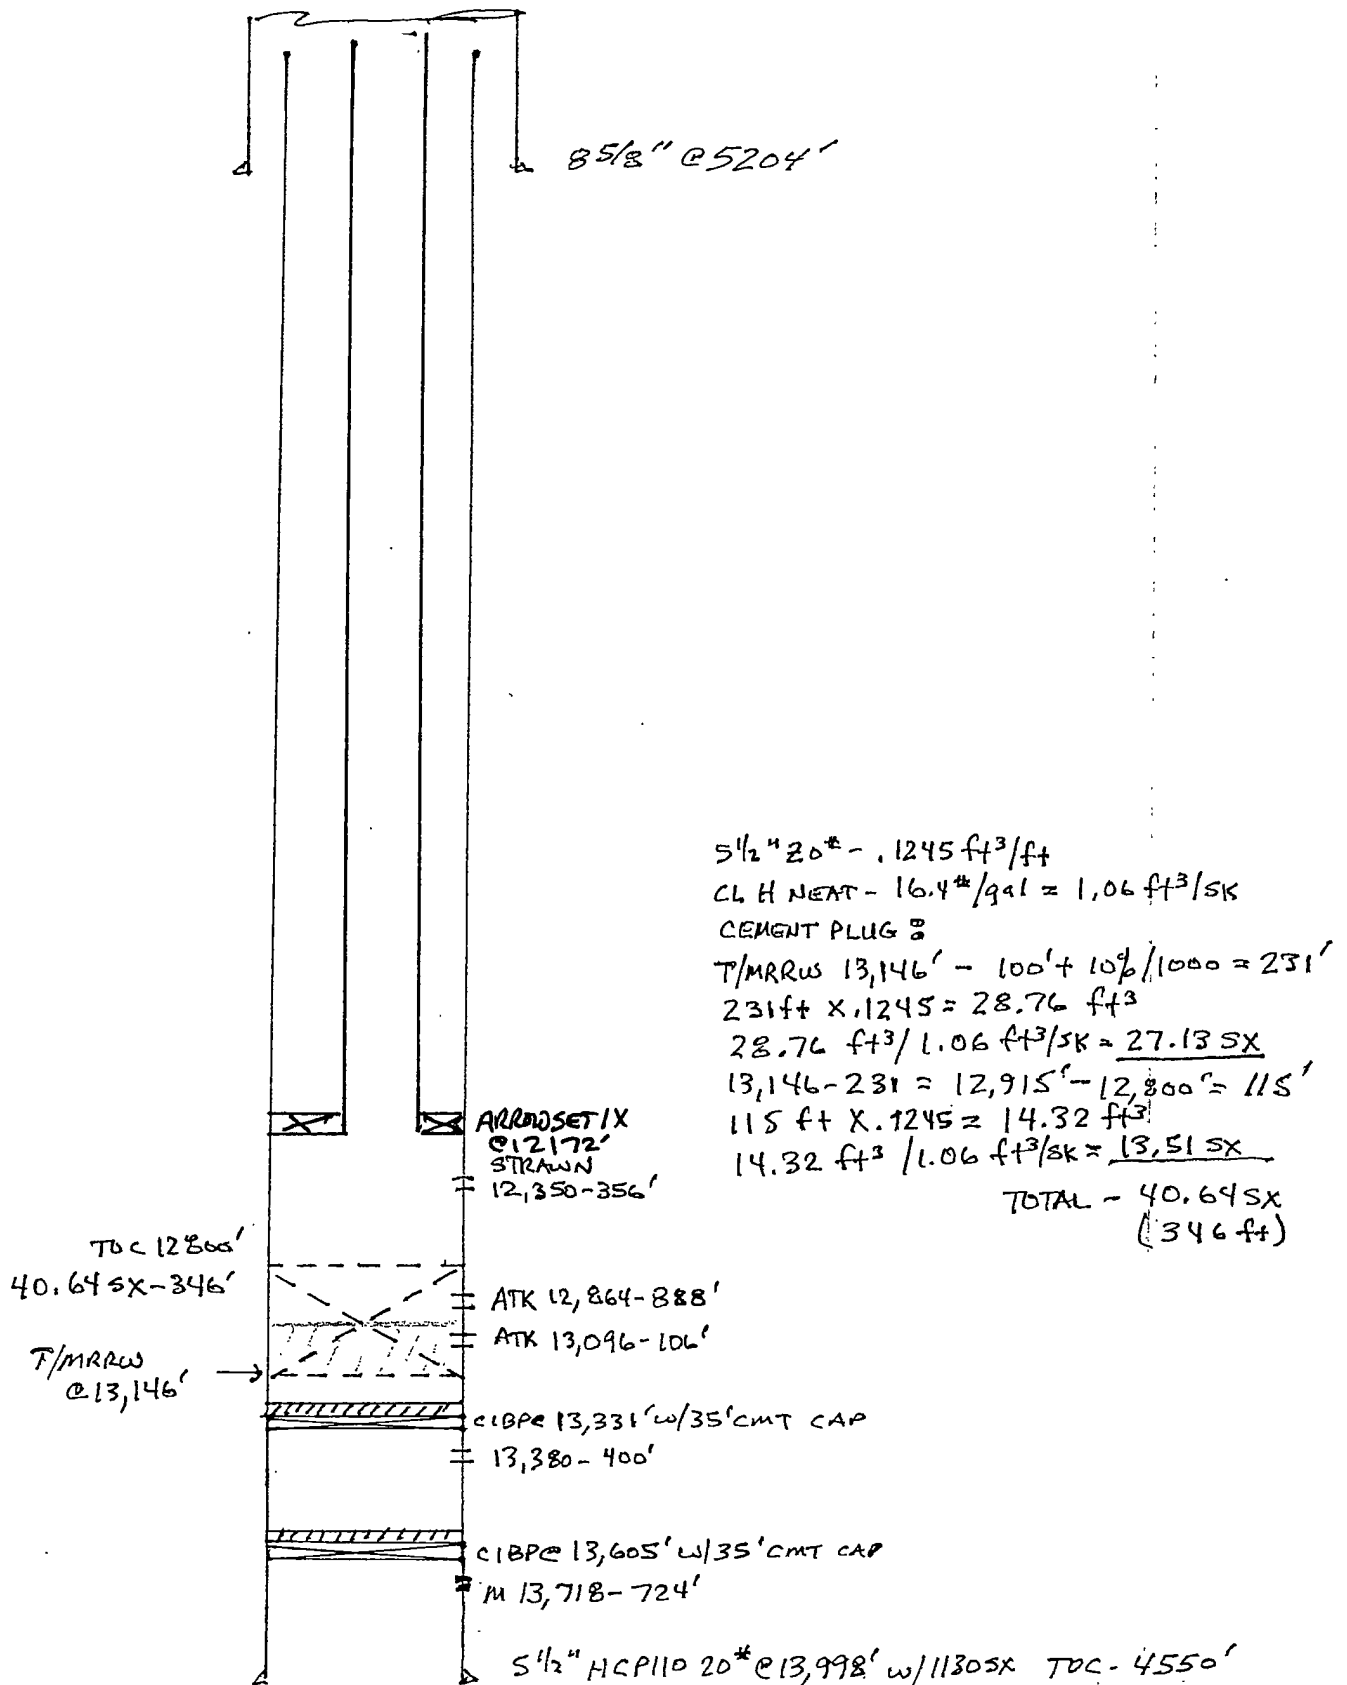 8 5/8" @5204'
5 1/2" 20# - .1245 ft³/ft
CL H NEAT - 16.4#/gal = 1.06 ft³/SK
CEMENT PLUG:
T/MRRW 13,146' - 100' + 10%/1000 = 231'
231 ft X .1245 = 28.76 ft³
28.76 ft³/1.06 ft³/SK = 27.13 SX
13,146-231 = 12,915' - 12,800' = 115'
115 ft X .1245 = 14.32 ft³
14.32 ft³ /1.06 ft³/SK = 13.51 SX
TOTAL - 40.64 SX
(346 ft)
ARROWSET 1X
@12172'
STRAWN
12,350-356'
TOC 12800'
40.64 SX-346'
ATK 12,864-888'
ATK 13,096-106'
T/MRRW
@13,146'
CIBP@ 13,331' w/35' CMT CAP
13,380-400'
CIBP@ 13,605' w/35' CMT CAP
M 13,718-724'
5 1/2" HCP110 20# @13,998' w/1130SX TOC- 4550'